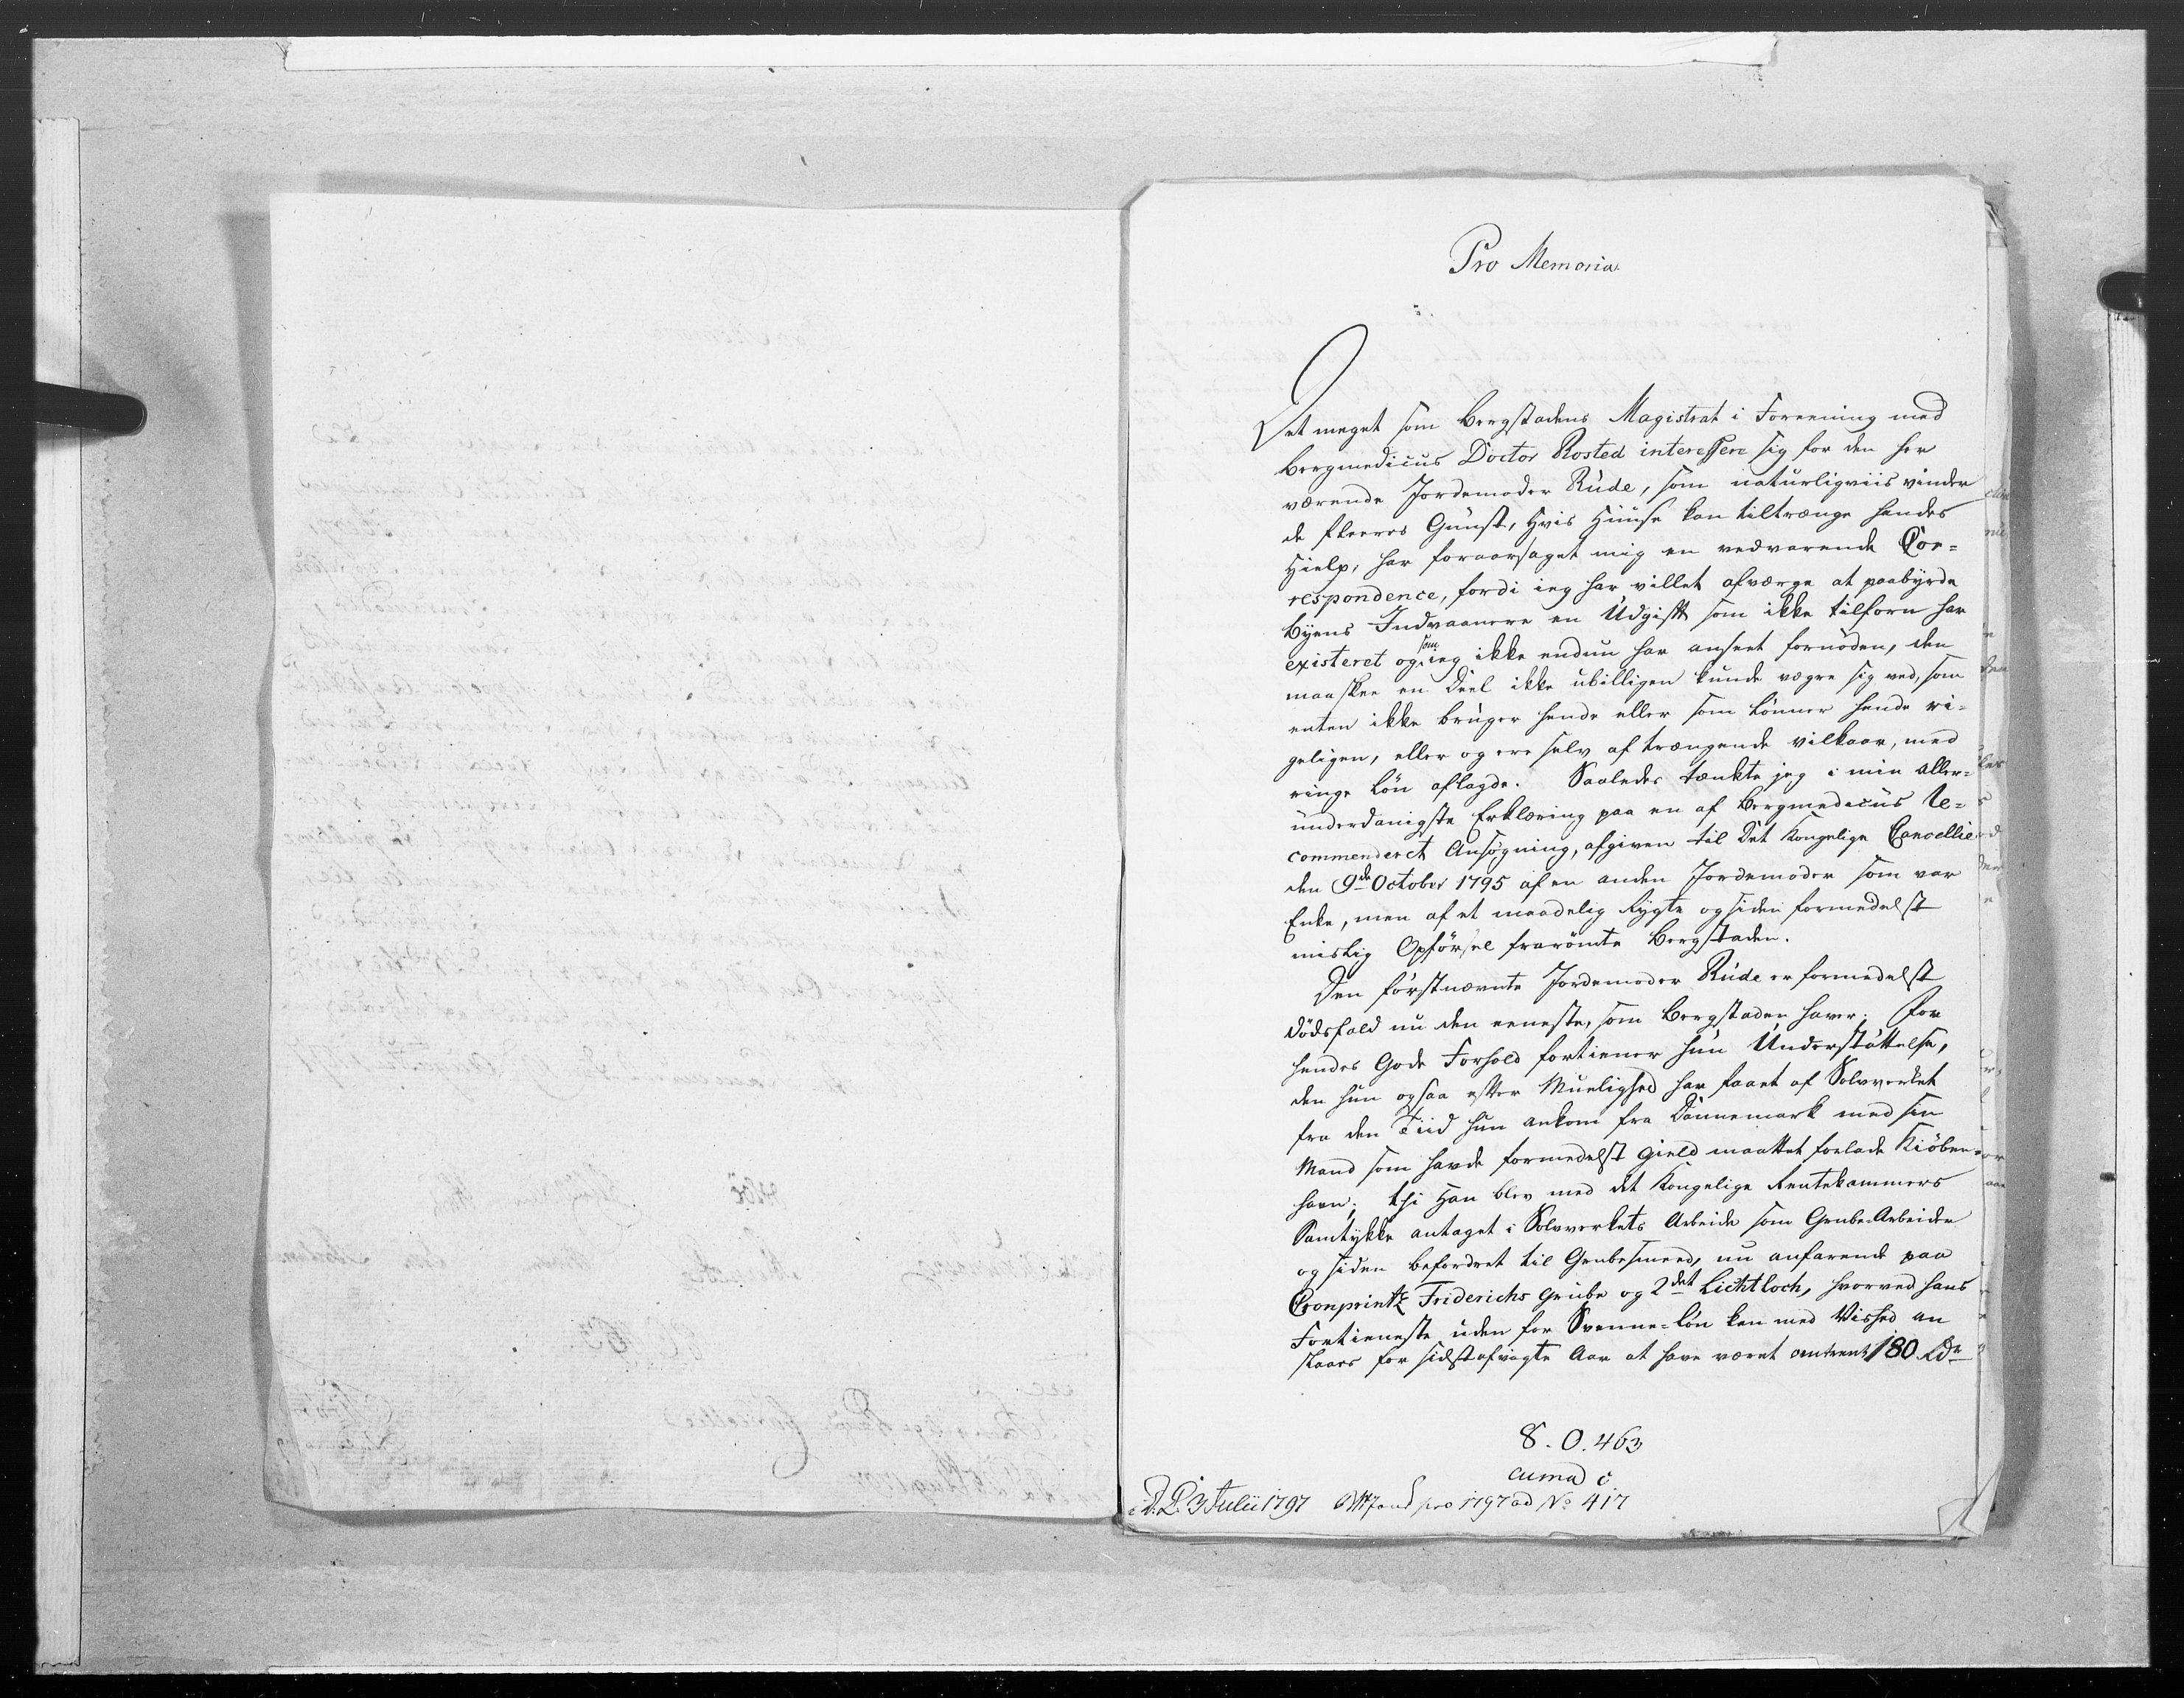 Pro Memoria.
Det meget som Bergstadens Magistrat i Foreening med
Bergmedicus Doctor Rosted interessere sig for den her
værende Jordemoder Rude, som naturligviis vinder
de fleeres Gunst, hvis Huuse kan tiltrænge hendes
Hielp, har foraarsaget mig en vedvarende Cor=
respondence, fordi ieg har villet afværge at paabyrde
Byens Indvaanere en Udgift som ikke tilforn har
existeret og som ieg ikke endnu har anseet fornöden, den
maaskee en Deel ikke ubilligen kunde vægre sig ved, som
enten ikke bruger hende eller som lönner hende ri=
geligen, eller og ere selv af trængende vilkaar, med
ringe Lön aflagde. Saaledes tænkte jeg i min aller=
underdanigste Erklæring paa en af Bergmedicus re=
commenderet Ansögning, afgiven til Det Kongelige Cancellie
den 9de October 1795 af en anden Jordemoder som var
Enke, men af et maadelig Rygte og siden formedelst
mislig Opförsel frarömte Bergstaden.
Den förstnævnte Jordemoder Rude er formedelst
Dödsfald nu den eeneste, som Bergstaden haver. For
hendes Gode Forhold fortiener hun Understöttelse,
den hun ogsaa efter Muelighed har faaet af Sölvverket
fra den Tiid hun ankom fra Dannemark med sin
Mand som havde formedelst Gield maattet forlade Kiöben=
havn; thi Han blev med det Kongelige Rentekammers
Samtykke antaget i Sölvverkets Arbeide som Grube-Arbeider
og siden befordret til Grubesmeed, nu anfarende paa
Cronprintz Friderichs Grube og 2det Lichtloch, hvorved hans
Fortieneste uden for Svenne=Lön kan med Vished an
slaaes for sidstafvigte Aar at have været omtrent 180 Rdr
8. O. 463
cum ad c
D. L. 3 Julii 1797 pro 1797 ad No 417